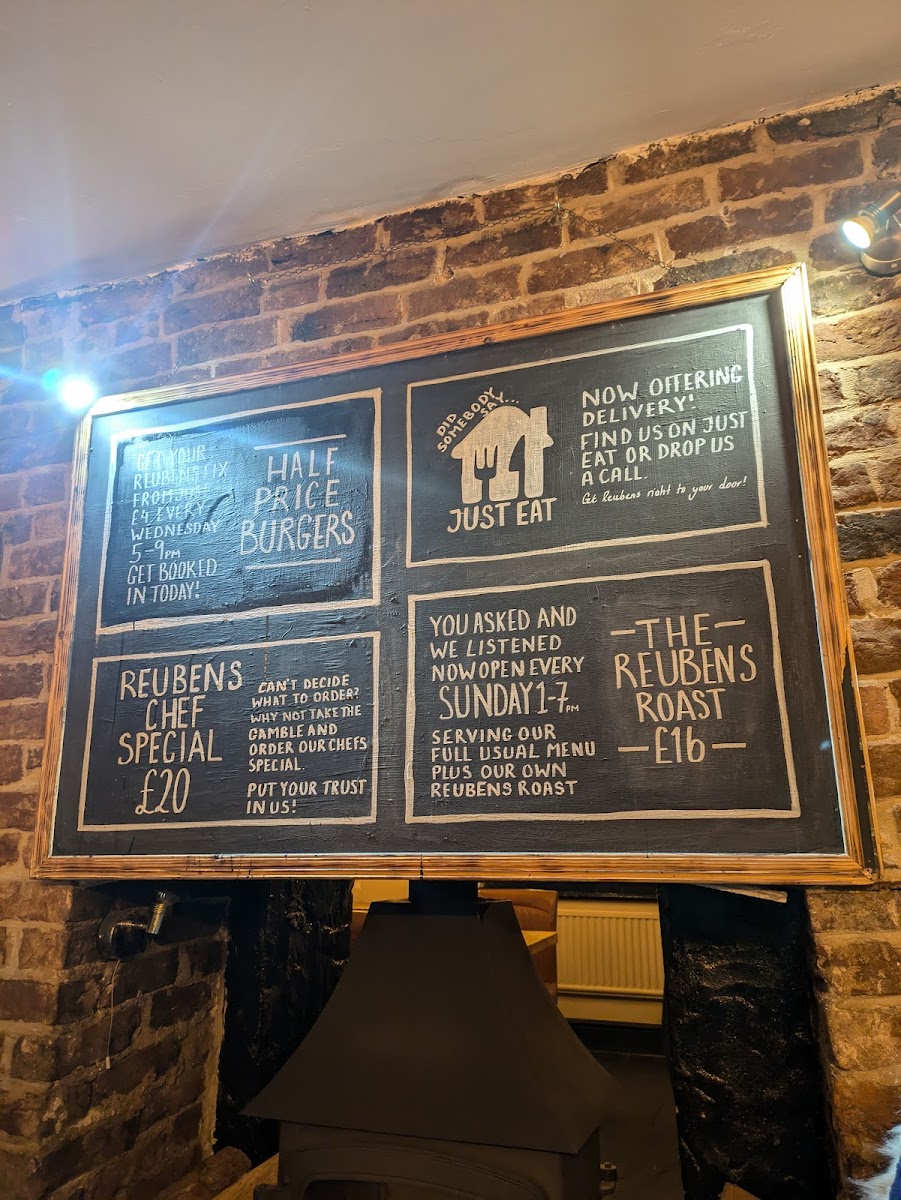 GET YOUR
REUBENS FIX
FROM JUST
£4 EVERY
WEDNESDAY
5-9PM
GET BOOKED
IN TODAY!
HALF
PRICE
BURGERS
DID
SOMEBODY
SAY...
JUST EAT
NOW OFFERING
DELIVERY!
FIND US ON JUST
EAT OR DROP US
A CALL.
Get Reubens right to your door!
REUBENS
CHEF
SPECIAL
£20
CAN'T DECIDE
WHAT TO ORDER?
WHY NOT TAKE THE
GAMBLE AND
ORDER OUR CHEFS
SPECIAL.
PUT YOUR TRUST
IN US!
YOU ASKED AND
WE LISTENED
NOW OPEN EVERY
SUNDAY 1-7PM
SERVING OUR
FULL USUAL MENU
PLUS OUR OWN
REUBENS ROAST
-THE-
REUBENS
ROAST
-£16-